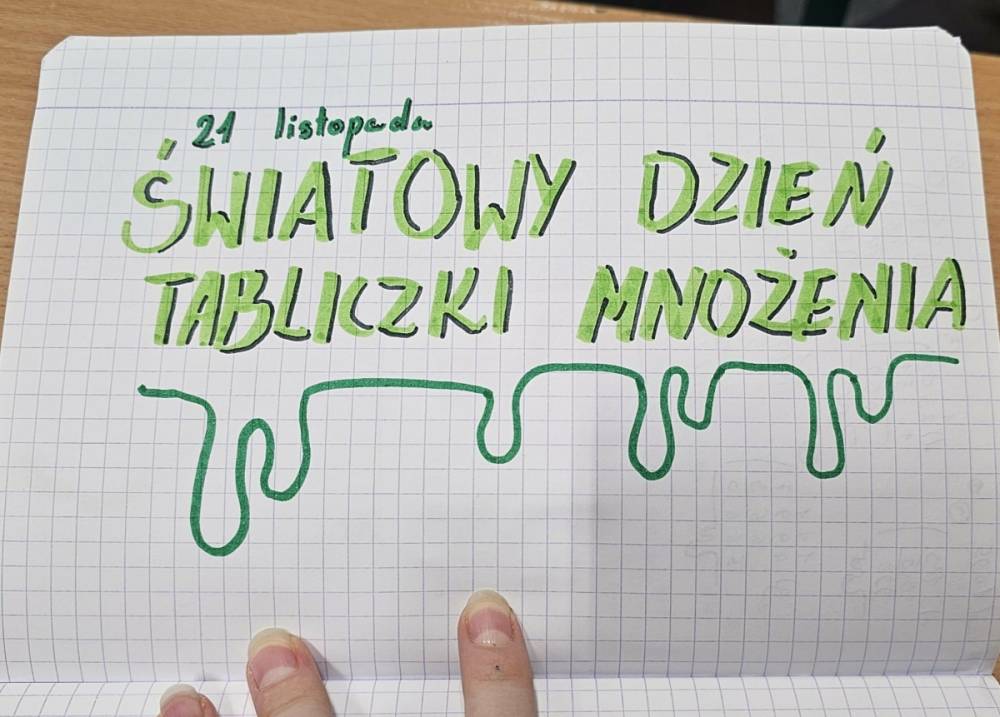 21 listopada
ŚWIATOWY DZIEŃ
TABLICZKI MNOŻENIA